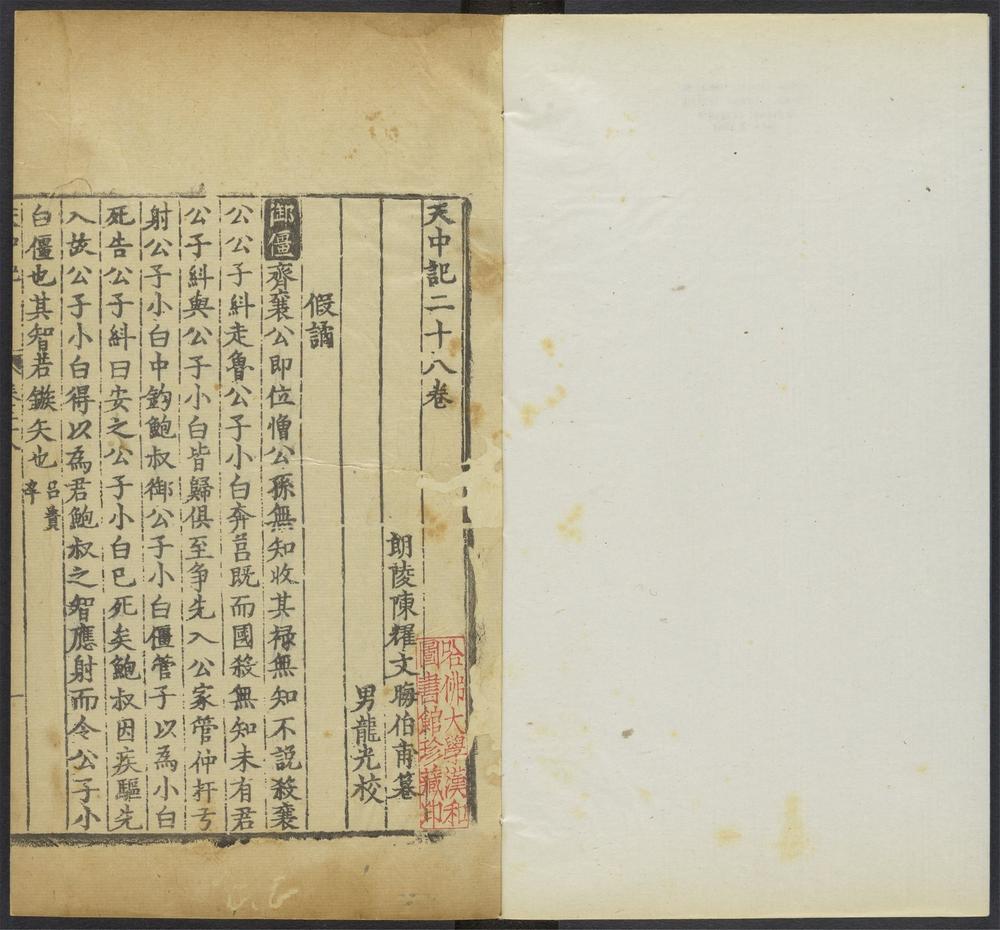 天中記二十八卷
朗陵陳耀文晦伯甫纂
男龍光校
假譎
御僵齊襄公即位憎公孫無知收其祿無知不說殺襄
公公子糾走魯公子小白奔莒既而國殺無知未有君
公子糾與公子小白皆歸俱至爭先入公家管仲扞弓
射公子小白中鈎鮑叔御公子小白僵管子以為小白
死告公子糾曰安之公子小白已死矣鮑叔因疾驅先
入故公子小白得以為君鮑叔之智應射而令公子小
白僵也其智若鏃矢也呂貴
率
哈佛大學漢和
圖書館珍藏印